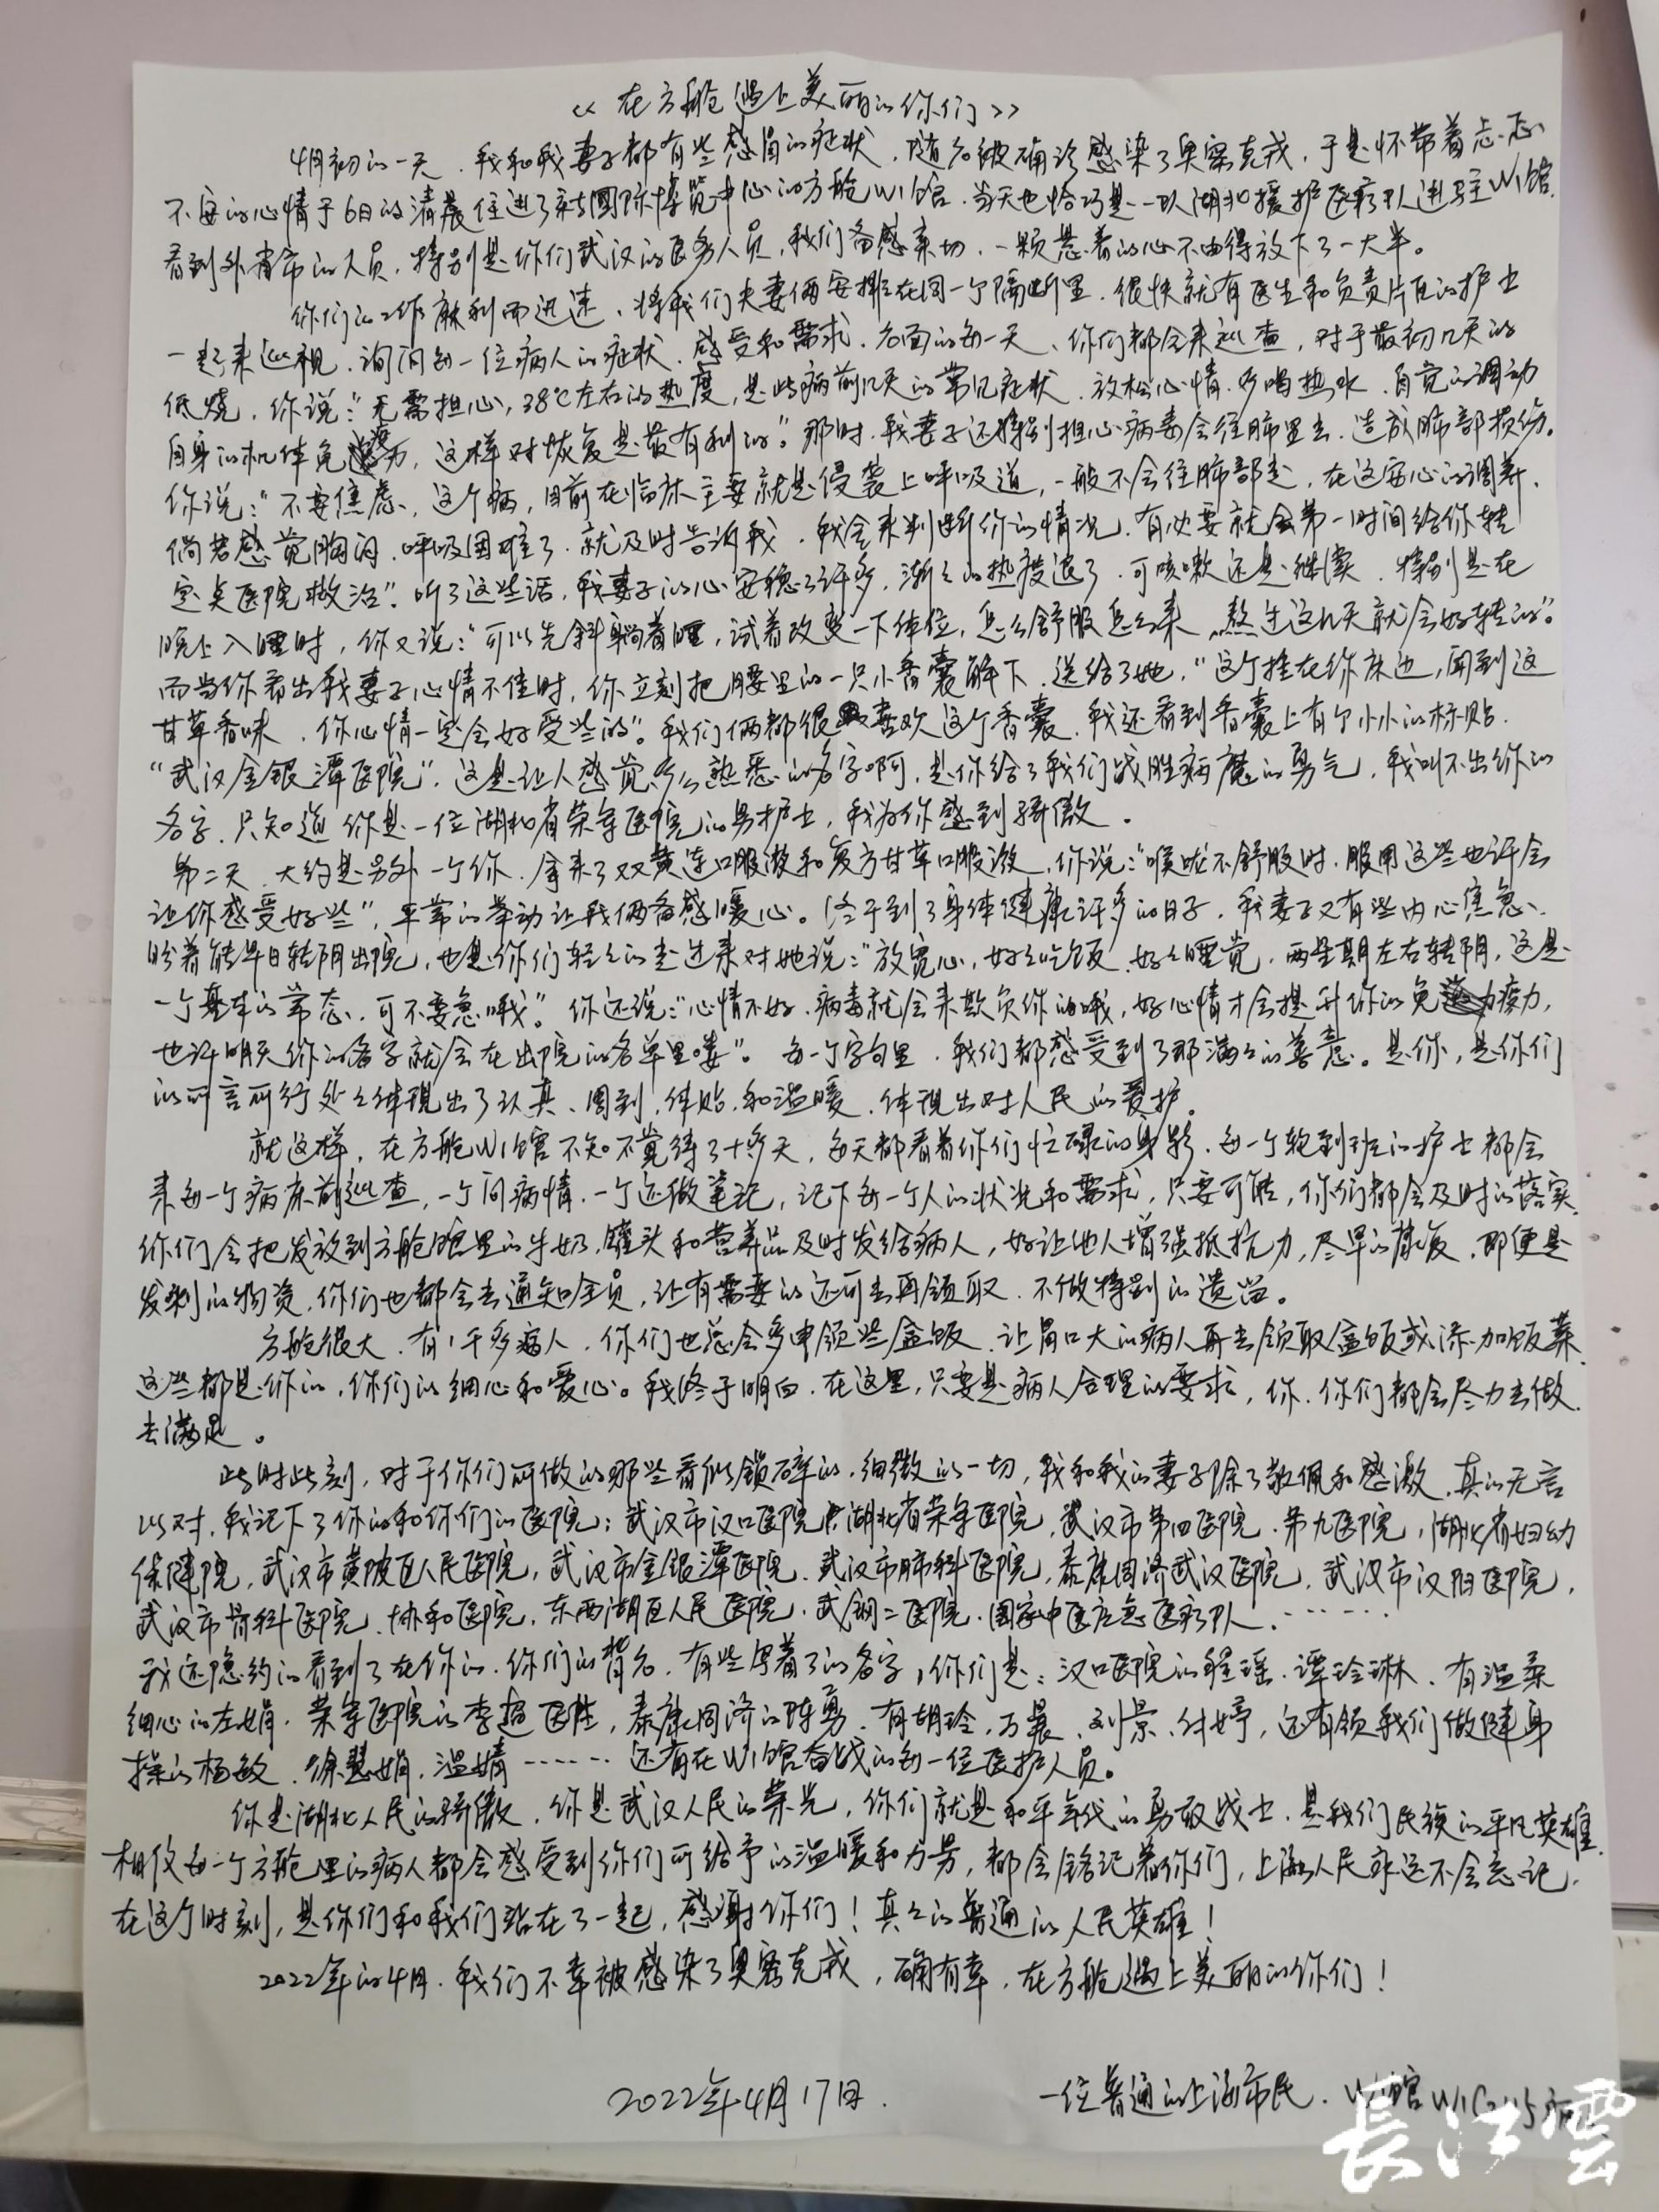 《在方舱遇上美丽的你们》
4月初的一天，我和我妻子都有些感冒的症状，随后被确诊感染了奥密克戎，于是怀带着忐忑
不安的心情于6日的清晨住进了新国际博览中心的方舱W1馆。当天也恰巧是一队湖北援沪医疗队进驻W1馆，
看到外省市的人员，特别是你们武汉的医务人员，我们备感亲切，一颗悬着的心不由得放下了一大半。
你们的工作麻利而迅速，将我们夫妻俩安排在同一个隔断里，很快就有医生和负责片区的护士
一起来巡视，询问每一位病人的症状、感受和需求，后面的每一天，你们都会来巡查，对于最初几天的
低烧，你说：“无需担心，38℃左右的热度，是此病前几天的常见症状，放松心情，多喝热水，自觉的调动
自身的机体免疫力，这样对恢复是最有利的。”那时，我妻子还特别担心病毒会往肺里去，造成肺部损伤。
你说：“不要焦虑，这个病，目前在临床主要就是侵袭上呼吸道，一般不会往肺部走，在这安心的调养，
倘若感觉胸闷，呼吸困难了，就及时告诉我，我会来判断你的情况，有必要就会第一时间给你转
定点医院救治”。听了这些话，我妻子的心安稳了许多，渐渐的热度退了，可咳嗽还是继续，特别是在
晚上入睡时，你又说：“可以先斜躺着睡，试着改变一下体位，怎么舒服怎么来，熬过这几天就会好转的”。
而当你看出我妻子心情不佳时，你立刻把腰里的一只小香囊解下，送给了她，“这个挂在你床边，闻到这
甘草香味，你心情一定会好受些的”。我们俩都很喜欢这个香囊，我还看到香囊上有个小小的标贴，
“武汉金银潭医院”，这是让人感觉多么熟悉的名字啊，是你给了我们战胜病魔的勇气，我叫不出你的
名字，只知道你是一位湖北省荣军医院的男护士，我为你感到骄傲。
第二天，大约是另外一个你，拿来了双黄连口服液和复方甘草口服液，你说：“喉咙不舒服时，服用这些也许会
让你感受好些”，平常的举动让我俩备感暖心。终于到了身体健康许多的日子，我妻子又有些内心焦急，
盼着能早日转阴出院，也是你们轻轻的走过来对她说：“放宽心，好好吃饭，好好睡觉，两星期左右转阴，这是
一个基本的常态，可不要急哦”。你还说：“心情不好，病毒就会来欺负你的哦，好心情才会提升你的免疫力，
也许明天你的名字就会在出院的名单里喽”。每一个字句里，我们都感受到了那满满的善意。是你，是你们
的所言所行处处体现出了认真、周到、体贴、和温暖，体现出对人民的爱护。
就这样，在方舱W1馆不知不觉待了十多天，每天都看着你们忙碌的身影，每一个轮到班的护士都会
来每一个病床前巡查，一个问病情，一个还做笔记，记下每一个人的状况和需求，只要可能，你们都会及时的落实，
你们会把发放到方舱馆里的牛奶、罐头和营养品及时发给病人，好让他人增强抵抗力，尽早的康复，即便是
发剩的物资，你们也都会去通知全员，让有需要的还可去再领取，不做特别的遗留。
方舱很大，有1千多病人，你们也总会多申领些盒饭，让胃口大的病人再去领取盒饭或添加饭菜，
这些都是你的，你们的细心和爱心。我终于明白，在这里，只要是病人合理的要求，你、你们都会尽力去做，
去满足。
此时此刻，对于你们所做的那些看似锁碎的，细微的一切，我和我的妻子除了敬佩和感激，真的无言
以对，我记下了你的和你们的医院：武汉市汉口医院，湖北省荣军医院，武汉市第四医院，第九医院，湖北省妇幼
保健院，武汉市黄陂区人民医院，武汉市金银潭医院，武汉市肺科医院，泰康同济武汉医院，武汉市汉阳医院，
武汉市骨科医院，协和医院，东西湖区人民医院，武钢二医院，国家中医应急医疗队，……
我还隐约的看到了在你的、你们的背后，有些写着了的名字，你们是：汉口医院的程瑶、谭玲琳，有温柔
细心的左娟，荣军医院的李超医胜，泰康同济的陈勇，有胡玲，万晨，刘景，付婷，还有领我们做健身
操的杨敏，徐慧娟，温婧……还有在W1馆奋战的每一位医护人员。
你是湖北人民的骄傲，你是武汉人民的荣光，你们就是和平年代的勇敢战士，是我们民族的平凡英雄，
相信每一个方舱里的病人都会感受到你们所给予的温暖和力量，都会铭记着你们，上海人民永远不会忘记，
在这个时刻，是你们和我们站在了一起，感谢你们！真真的普通的人民英雄！
2022年的4月，我们不幸被感染了奥密克戎，确有幸，在方舱遇上美丽的你们！
2022年4月17日.
一位普通的上海市民. W1馆
長江雲